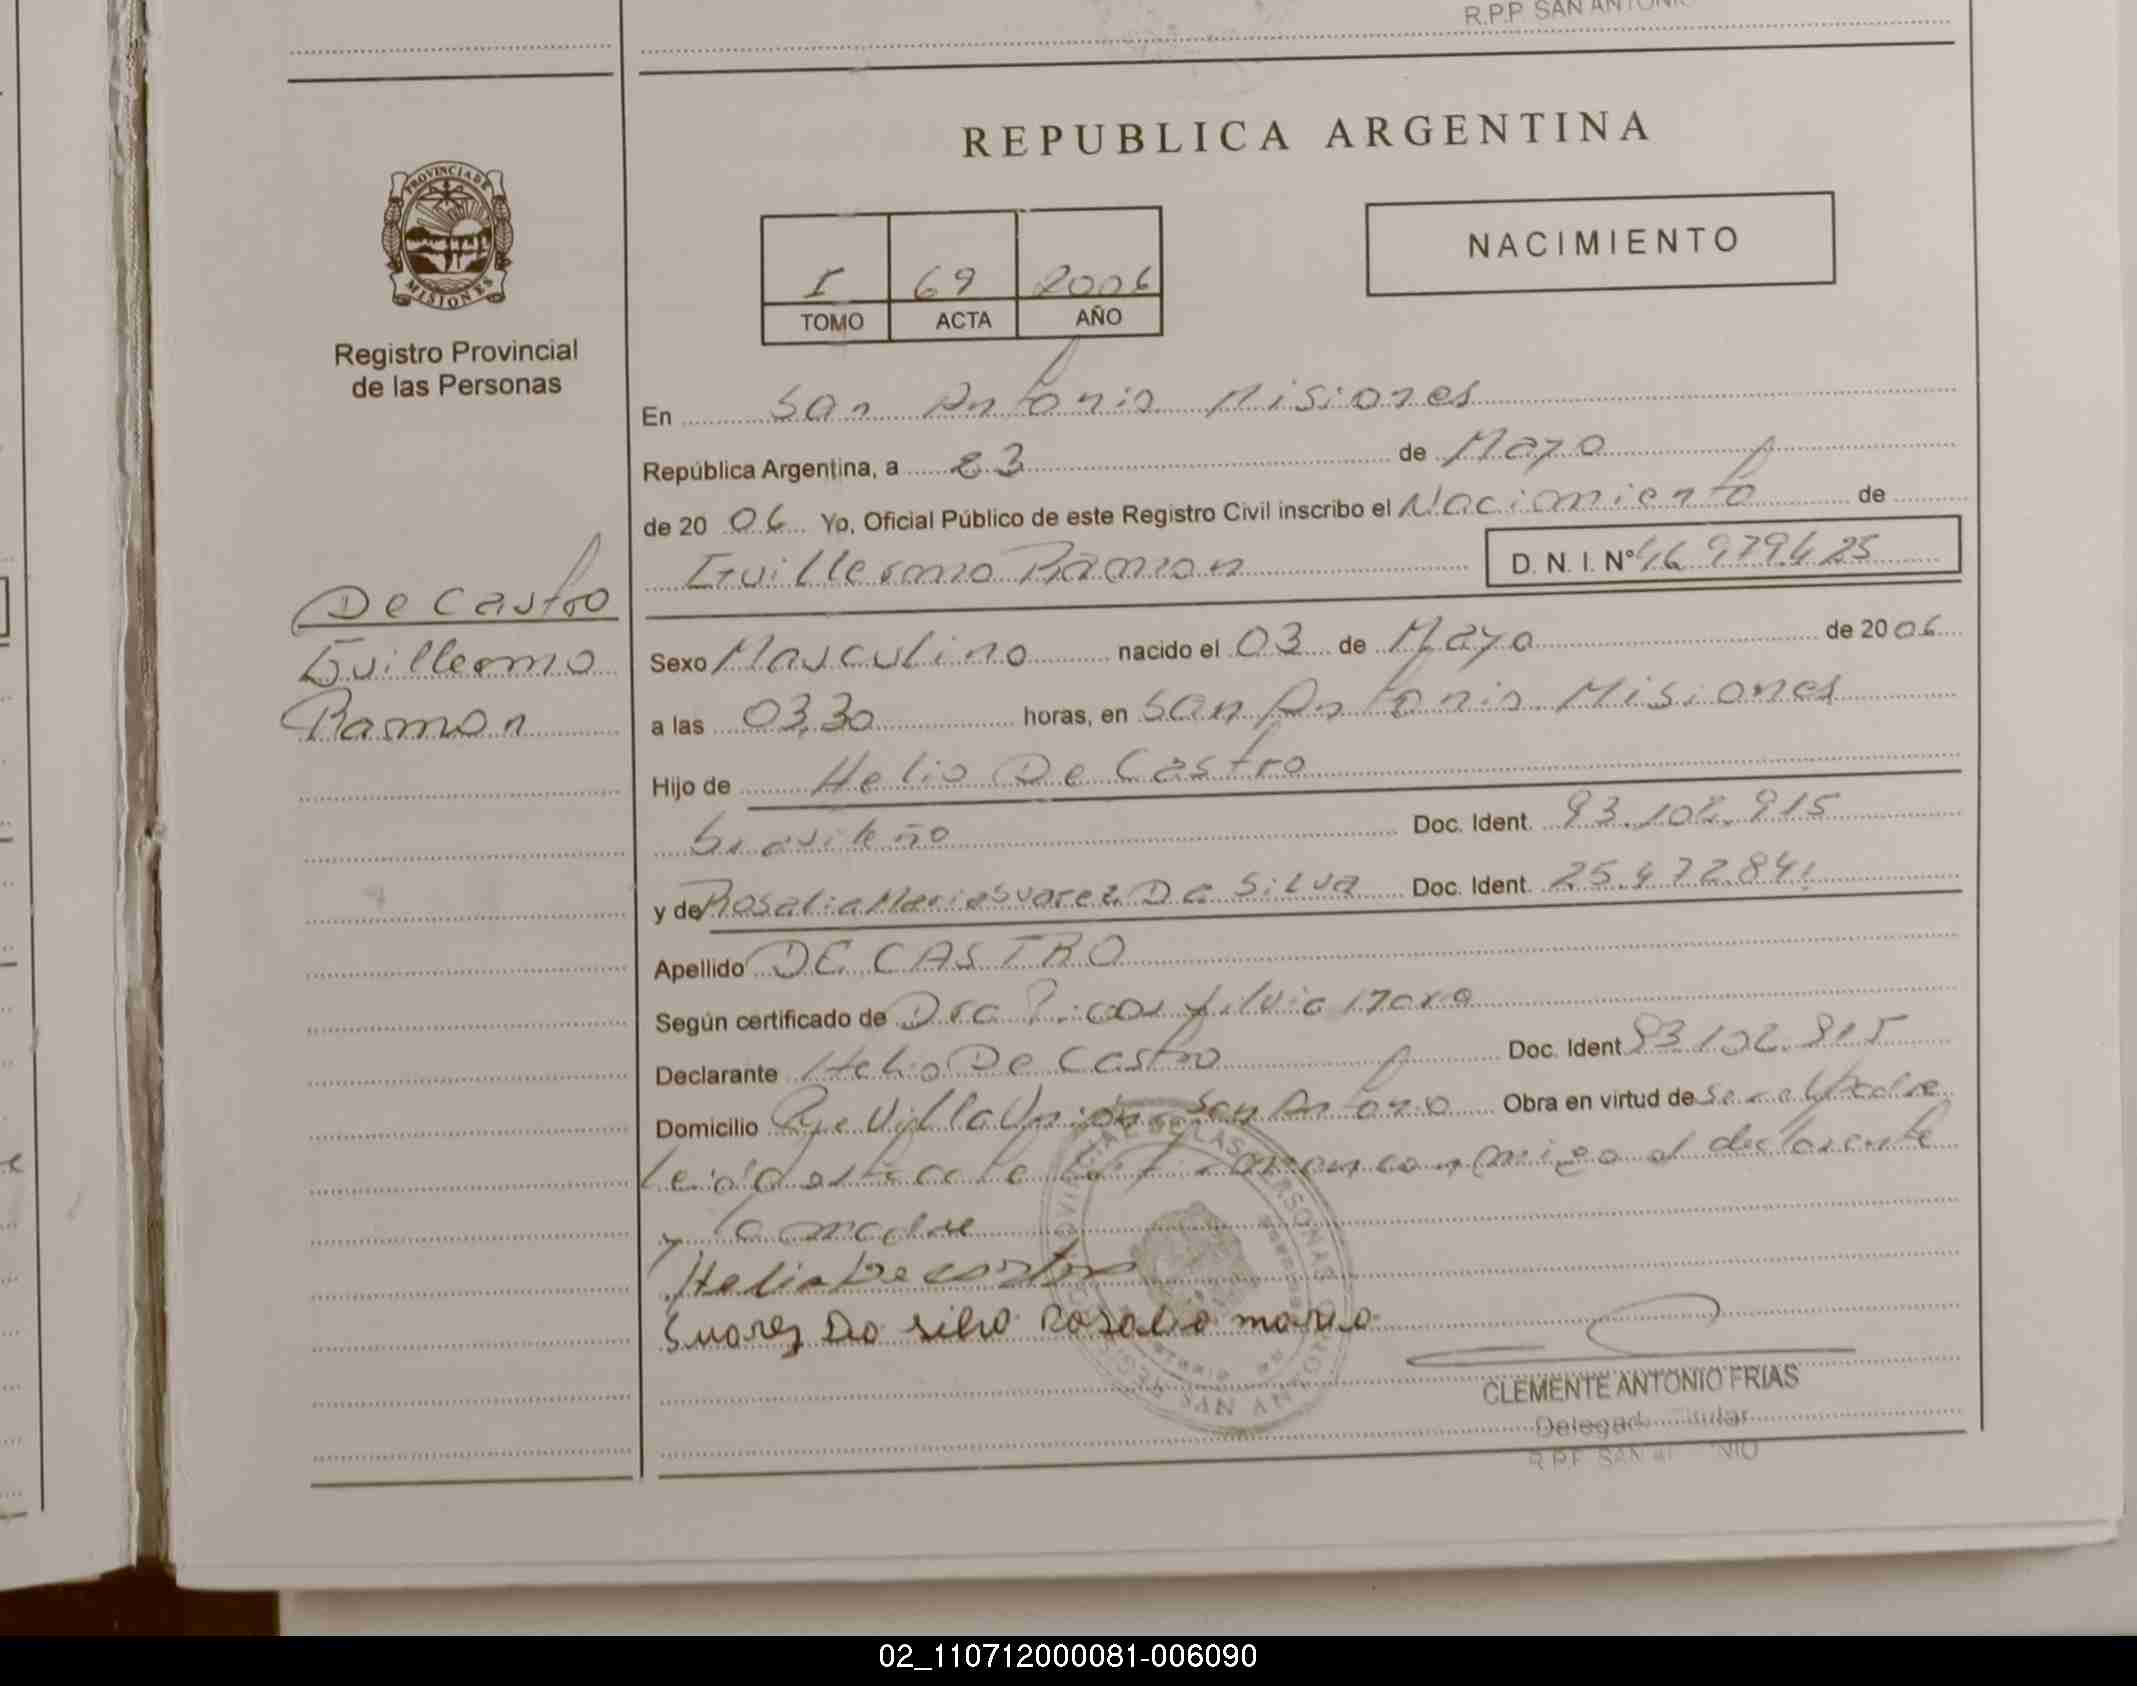 R.P.P SAN ANTONIO
REPUBLICA ARGENTINA
PROVINCIA DE
MISIONES
Registro Provincial
de las Personas
I 69 2006
TOMO ACTA AÑO
NACIMIENTO
En San Antonio Misiones
República Argentina, a 23 de Mayo
de 20 06 Yo, Oficial Público de este Registro Civil inscribo el Nacimiento de
Guillermo Ramon D. N. I. Nº 46 979.425
De Castro
Guillermo
Ramon
Sexo Masculino nacido el 03 de Mayo de 2006
a las 03,30 horas, en San Antonio Misiones
Hijo de Helio De Castro
brasileño Doc. Ident. 93.102.915
y de Rosalia Maria Suarez Da Silva Doc. Ident. 25.472.841
Apellido DE CASTRO
Según certificado de Dra Silvia
Declarante Helio De Castro Doc. Ident 93 102.915
Domicilio Villa Union San Antonio Obra en virtud de ser el padre
Leida el acta la firman conmigo el declarante
y la madre
Helio De castro
Suarez Da silva Rosalia maria
CLEMENTE ANTONIO FRIAS
Delegado Titular
R.P.P SAN ANTONIO
02_110712000081-006090